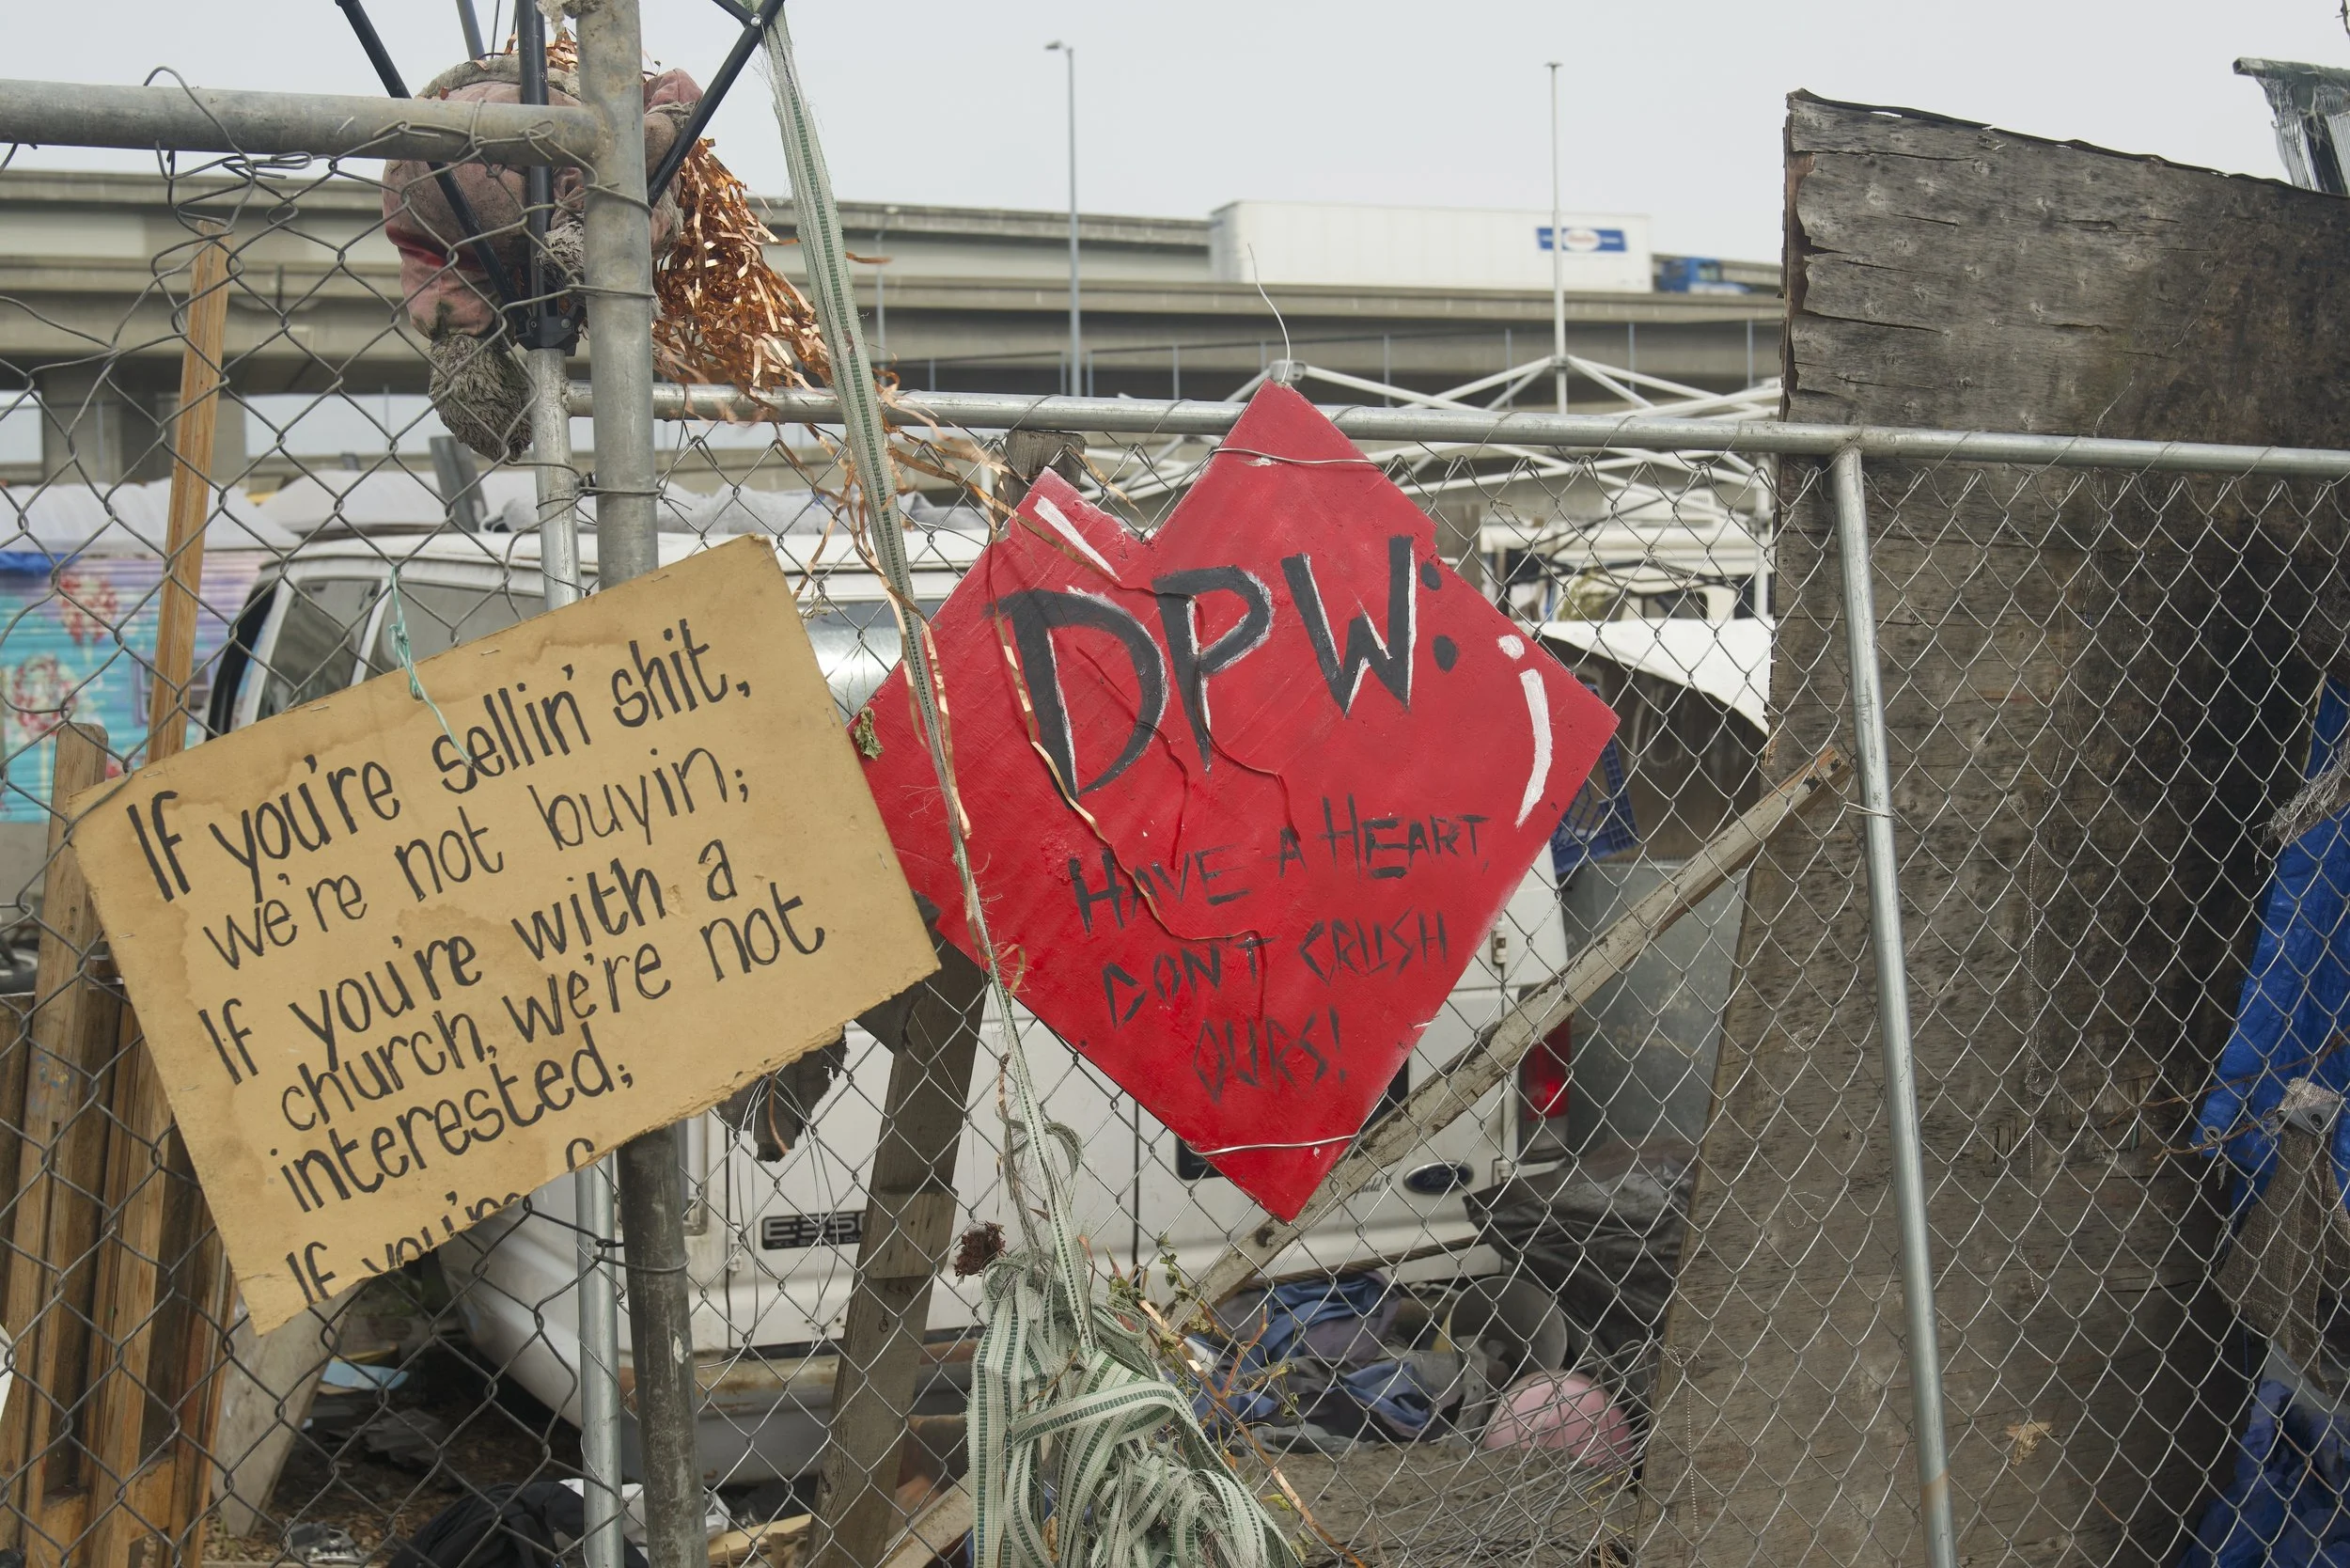 If you're sellin' shit,
we're not buyin;
If you're with a
church, we're not
interested;
If you're
DPW:
HAVE A HEART,
DON'T CRUSH
OURS!
E350
Ford